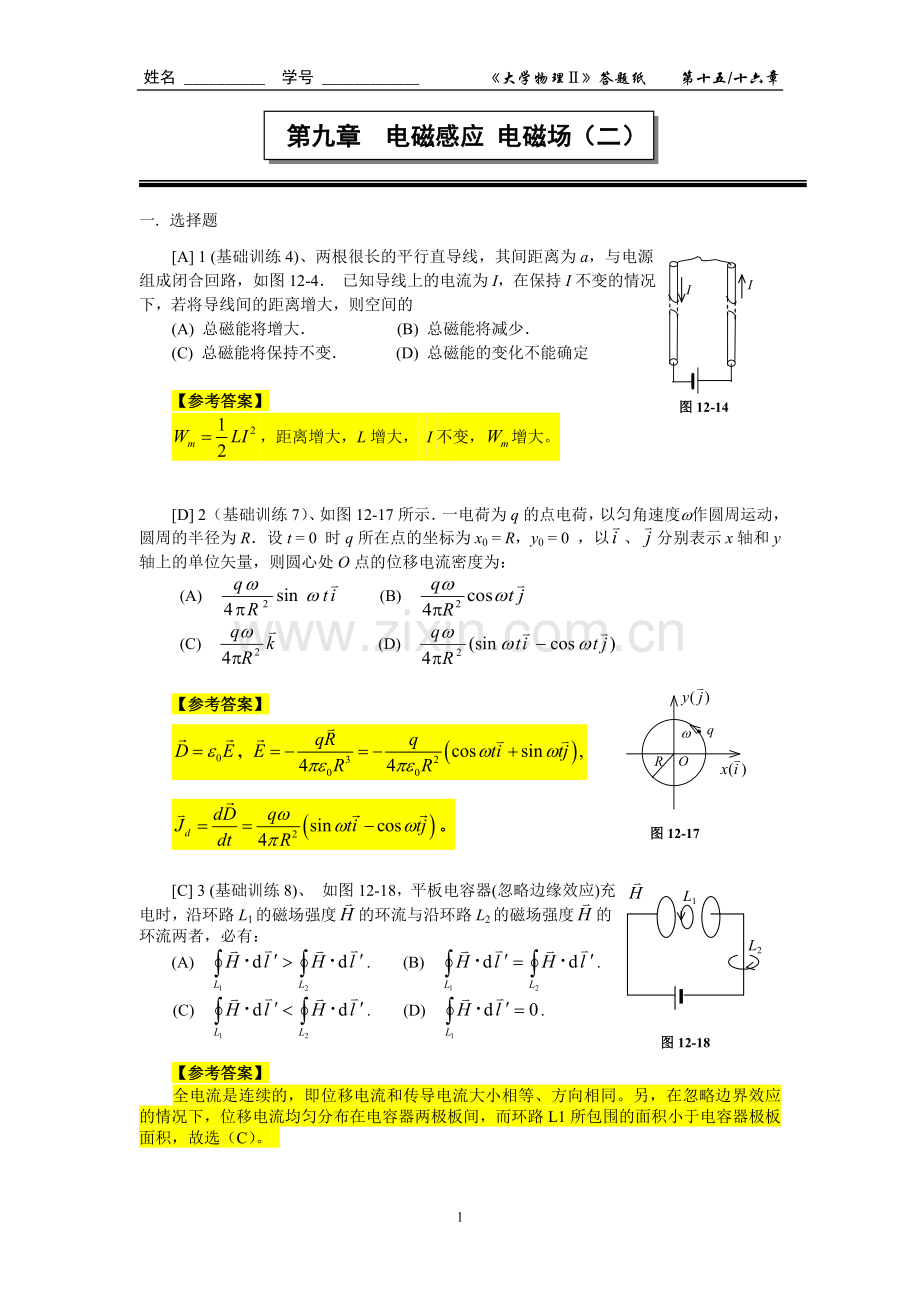 姓名 __________ 学号 ____________ 《大学物理Ⅱ》答题纸 第十五/十六章
第九章 电磁感应 电磁场（二）
一. 选择题
[A] 1 (基础训练 4)、两根很长的平行直导线，其间距离为 a，与电源
组成闭合回路，如图 12-4． 已知导线上的电流为 I，在保持 I 不变的情况
下，若将导线间的距离增大，则空间的
(A) 总磁能将增大． (B) 总磁能将减少．
(C) 总磁能将保持不变． (D) 总磁能的变化不能确定
I I
图 12-14
【参考答案】
W_m = 1/2 LI²，距离增大，L 增大， I 不变，W_m 增大。
[D] 2（基础训练 7）、如图 12-17 所示．一电荷为 q 的点电荷，以匀角速度ω作圆周运动，
圆周的半径为 R．设 t = 0 时 q 所在点的坐标为 x₀ = R，y₀ = 0 ，以 i⃗ 、 j⃗ 分别表示 x 轴和 y
轴上的单位矢量，则圆心处 O 点的位移电流密度为：
(A) qω/4πR² sin ωt i⃗ (B) qω/4πR² cos ωt j⃗
(C) qω/4πR² k⃗ (D) qω/4πR² (sin ωt i⃗ − cos ωt j⃗)
www.zixin.com.cn
【参考答案】
D⃗ = ε₀E⃗， E⃗ = − qR⃗/4πε₀R³ = − q/4πε₀R² (cos ωt i⃗ + sin ωt j⃗),
J⃗_d = dD⃗/dt = qω/4πR² (sin ωt i⃗ − cos ωt j⃗)。
y(j⃗)
ω q
R O
x(i⃗)
图 12-17
[C] 3 (基础训练 8)、 如图 12-18，平板电容器(忽略边缘效应)充
电时，沿环路 L₁ 的磁场强度 H⃗ 的环流与沿环路 L₂ 的磁场强度 H⃗ 的
环流两者，必有：
(A) ∮_L₁ H⃗·dl⃗′ > ∮_L₂ H⃗·dl⃗′. (B) ∮_L₁ H⃗·dl⃗′ = ∮_L₂ H⃗·dl⃗′.
(C) ∮_L₁ H⃗·dl⃗′ < ∮_L₂ H⃗·dl⃗′. (D) ∮_L₁ H⃗·dl⃗′ = 0.
H⃗ L₁
L₂
图 12-18
【参考答案】
全电流是连续的，即位移电流和传导电流大小相等、方向相同。另，在忽略边界效应
的情况下，位移电流均匀分布在电容器两极板间，而环路 L1 所包围的面积小于电容器极板
面积，故选（C）。
1